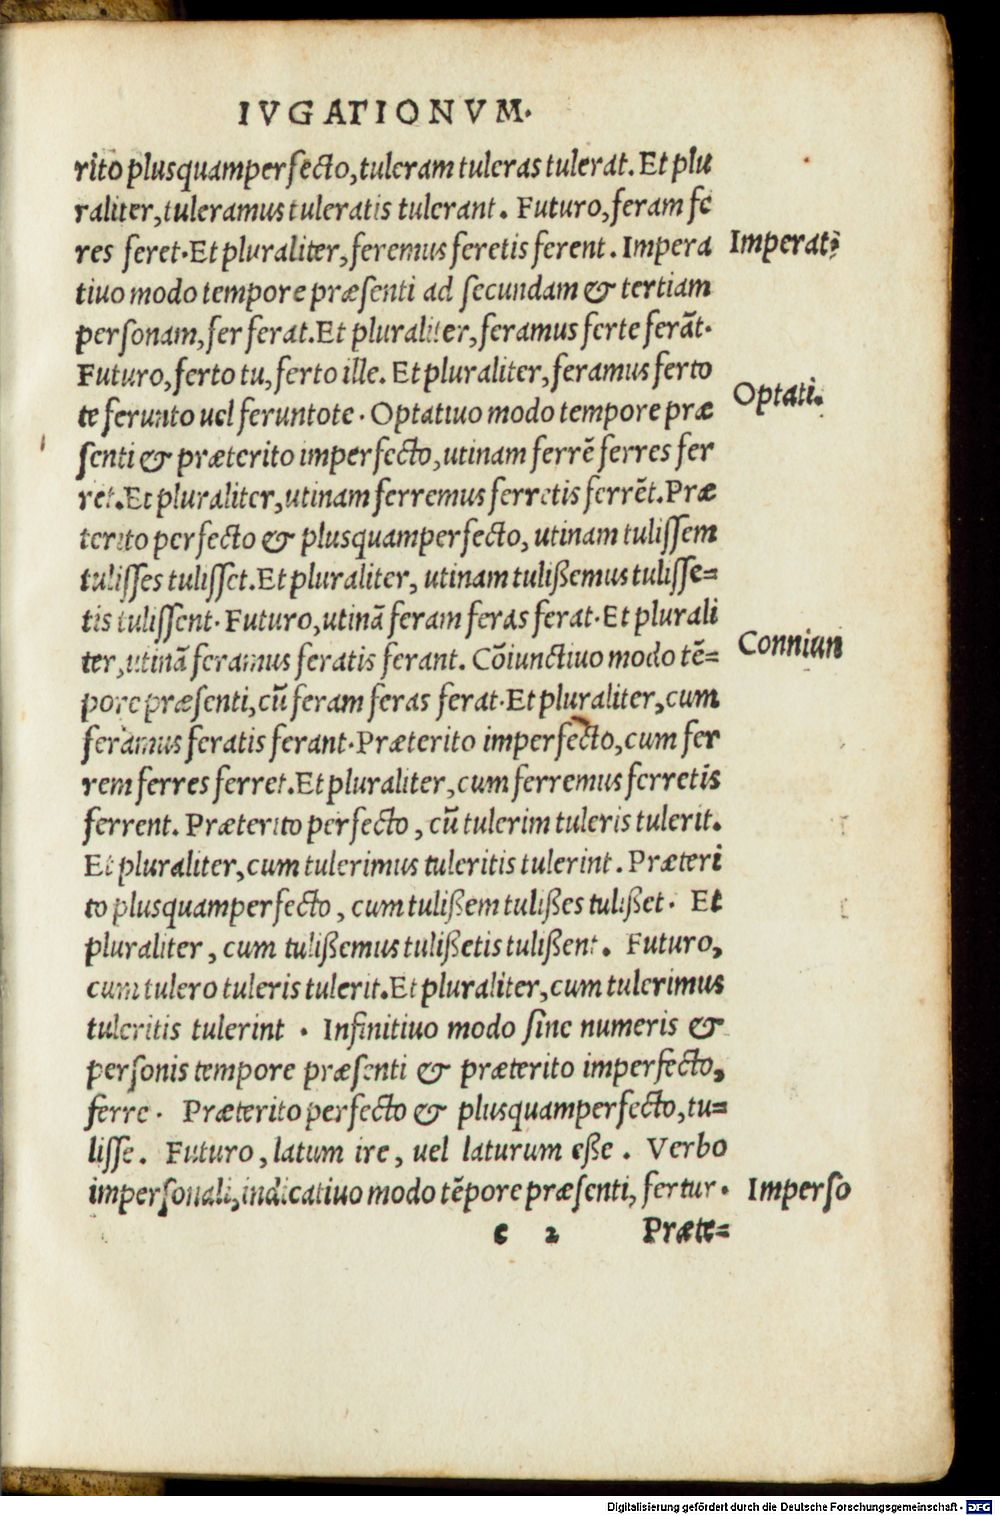 IVGATIONVM.
rito plusquamperfecto, tuleram tuleras tulerat. Et plu
raliter, tuleramus tuleratis tulerant. Futuro, feram fe
res feret. Et pluraliter, feremus feretis ferent. Impera
Imperati
tiuo modo tempore præsenti ad secundam & tertiam
personam, fer ferat. Et pluraliter, feramus ferte ferāt.
Futuro, ferto tu, ferto ille. Et pluraliter, feramus ferto
Optati.
te ferunto uel feruntote. Optatiuo modo tempore præ
senti & præterito imperfecto, utinam ferrē ferres fer
ret. Et pluraliter, utinam ferremus ferretis ferrēt. Præ
terito perfecto & plusquamperfecto, utinam tulissem
tulisses tulisset. Et pluraliter, utinam tulißemus tulisse=
tis tulissent. Futuro, utinā feram feras ferat. Et plurali
ter, utinā feramus feratis ferant. Cōiunctiuo modo tē=
Conniun
pore præsenti, cū feram feras ferat. Et pluraliter, cum
feramus feratis ferant. Præterito imperfecto, cum fer
rem ferres ferret. Et pluraliter, cum ferremus ferretis
ferrent. Præterito perfecto, cū tulerim tuleris tulerit.
Et pluraliter, cum tulerimus tuleritis tulerint. Præteri
to plusquamperfecto, cum tulißem tulißes tulißet. Et
pluraliter, cum tulißemus tulißetis tulißent. Futuro,
cum tulero tuleris tulerit. Et pluraliter, cum tulerimus
tuleritis tulerint. Infinitiuo modo sine numeris &
personis tempore præsenti & præterito imperfecto,
ferre. Præterito perfecto & plusquamperfecto, tu=
lisse. Futuro, latum ire, uel laturum eße. Verbo
impersonali, indicatiuo modo tēpore præsenti, fertur.
Imperso
c 2 Præte=
Digitalisierung gefördert durch die Deutsche Forschungsgemeinschaft - DFG